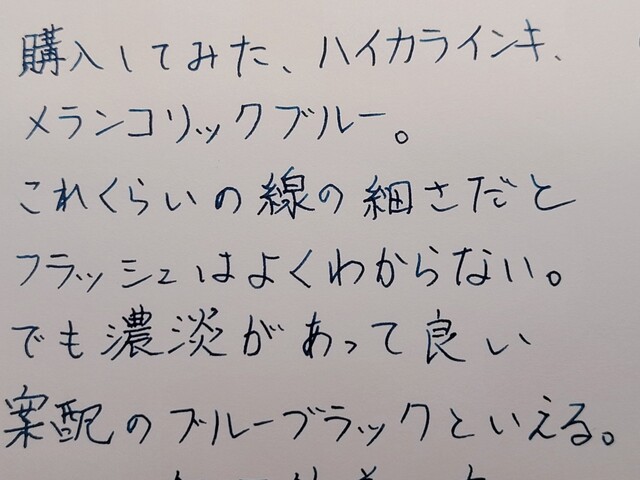 購入してみた、ハイカラインキ、
メランコリックブルー。
これくらいの線の細さだと
フラッシュはよくわからない。
でも濃淡があって良い
案配のブルーブラックといえる。